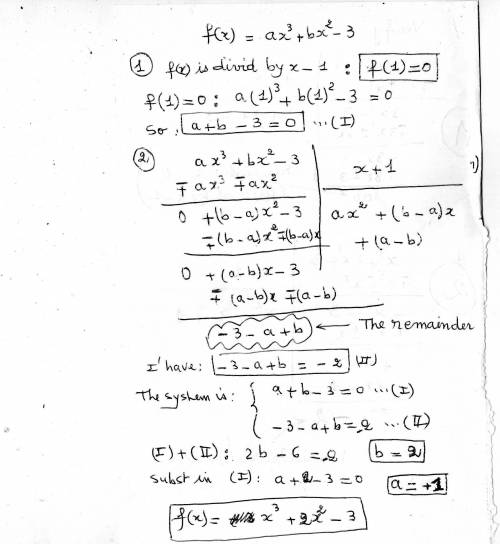 f(x) = ax³ + bx² - 3
① f(x) is divid by x - 1 : f(1) = 0
f(1) = 0 : a(1)³ + b(1)² - 3 = 0
So : a + b - 3 = 0 ... (I)
② ax³ + bx² - 3 | x + 1
∓ ax³ ∓ ax²
0 + (b - a)x² - 3 | ax² + (b - a)x
∓ (b - a)x² ∓ (b - a)x | + (a - b)
0 + (a - b)x - 3
∓ (a - b)x ∓ (a - b)
- 3 - a + b ← The remainder
I have : - 3 - a + b = - 2 (II)
The system is : { a + b - 3 = 0 ... (I)
- 3 - a + b = -2 ... (II)
(I) + (II) : 2b - 6 = -2 b = 2
subst in (I) : a + 2 - 3 = 0 a = +1
f(x) = x³ + 2x² - 3